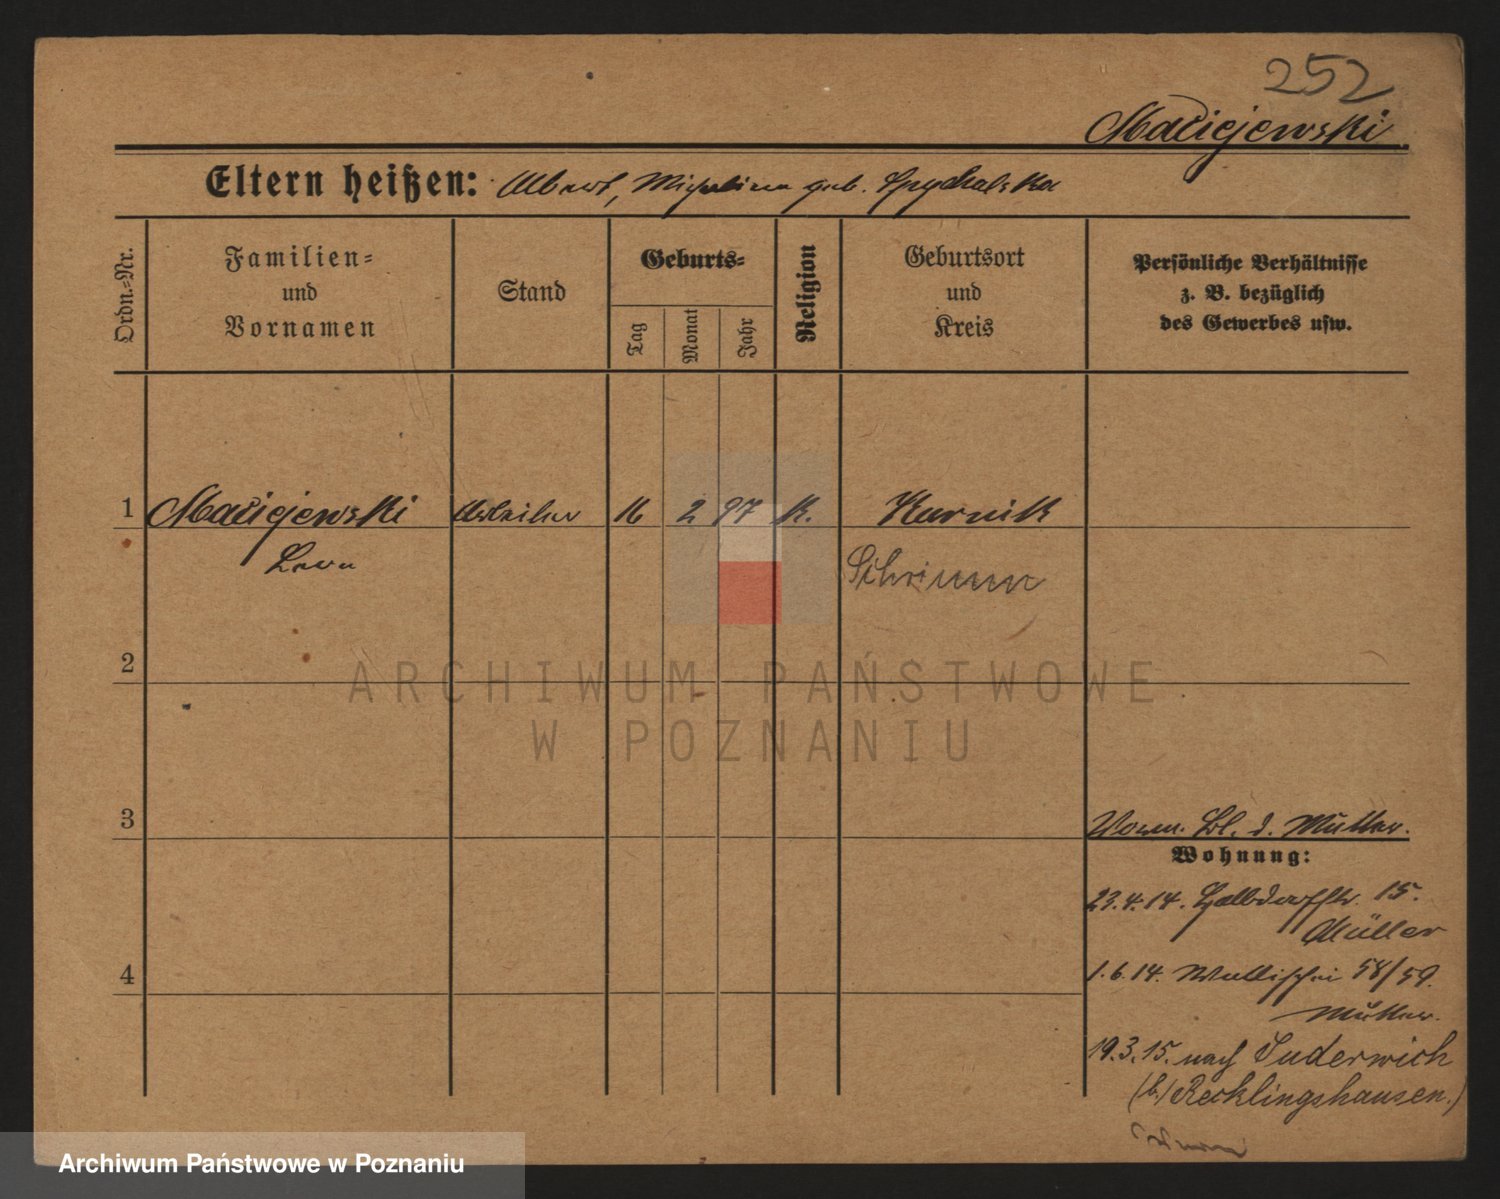 252
Maciejewski
Eltern heißen: Albert, Michalina geb. Spychalska
Ordn.-Nr.
Familien-
und
Vornamen
Stand
Geburts-
Tag
Monat
Jahr
Religion
Geburtsort
und
Kreis
Persönliche Verhältnisse
z. B. bezüglich
des Gewerbes usw.
1 Maciejewski Arbeiter 16 2 97 K. Kurnik
Leon
Schrimm
2
ARCHIWUM PAŃSTWOWE
W POZNANIU
3
Vorm. Bl. d. Mutter.
Wohnung:
23.4.14. Halbdorfstr. 15.
Müller
4
1.6.14. Wallischei 58/59.
Mutter.
19.3.15. nach Suderwich
(b./Recklingshausen.)
Archiwum Państwowe w Poznaniu